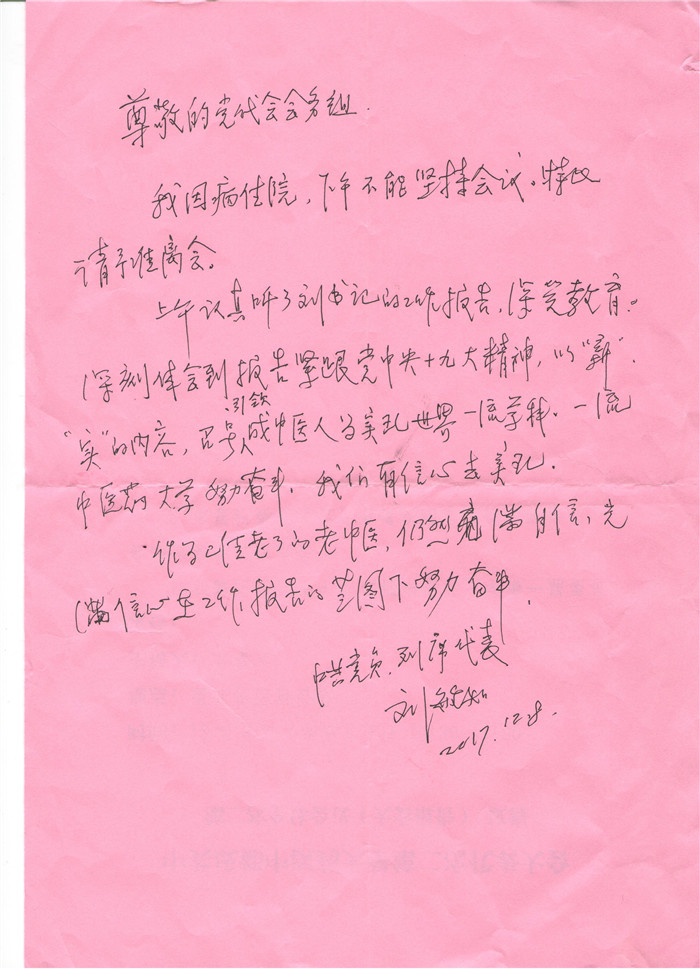 尊敬的党代会会务组.
我因病住院,下午不能坚持会议。特此
请予准离会。
上午认真听了刘书记的工作报告,深觉教育。
深刻体会到报告紧跟党中央十九大精神,以"新".
引领
"实"的内容,号成中医人为实现世界一流学科、一流
中医药大学努力奋斗,我们有信心去实现.
作为已经老了的老中医,仍然满自信,充
满信心在工作报告的蓝图下努力奋斗,
中共党员.列席代表
刘敏如
2017.12.8.